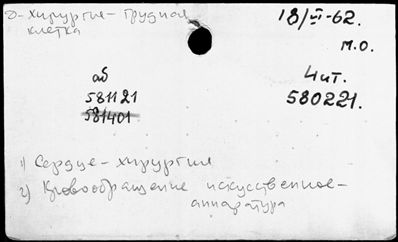 2-хирургия-грудная
клетка
18/VI-62.
М.О.
аб
581121
581401
Чит.
580221.
1) Сердце-хирургия
2) Кровообращение искусственное-
аппаратура